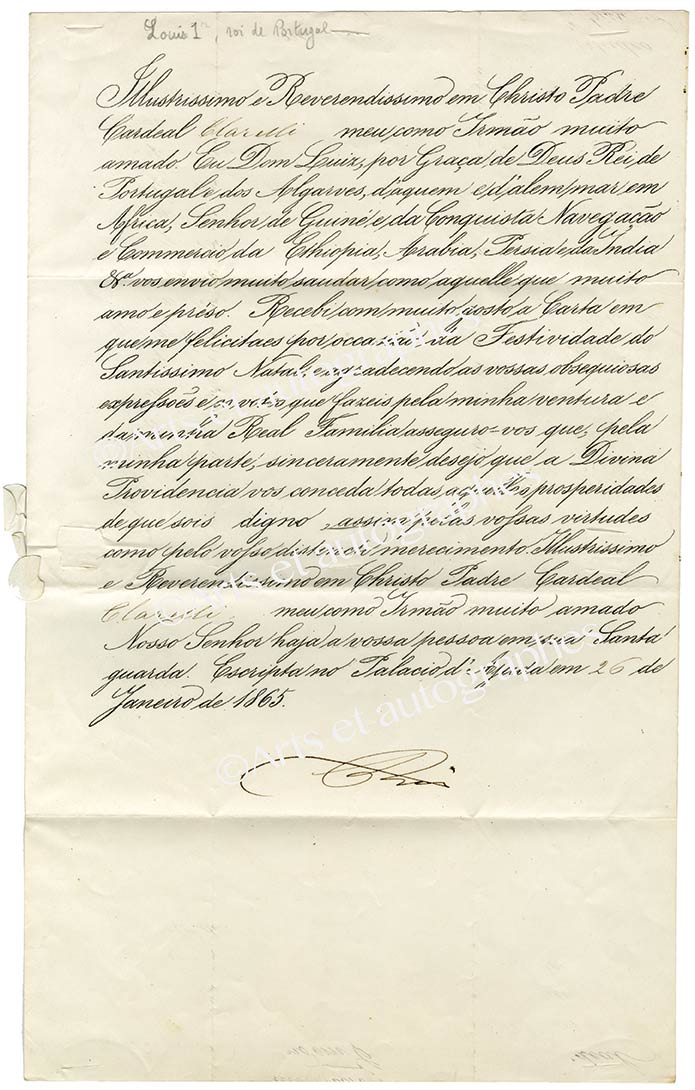 Louis 1er, roi de Portugal
Illustrissimo e Reverendissimo em Christo Padre
Cardeal Clarelli meu, como Irmão muito
amado. Eu Dom Luiz, por Graça de Deus Rei de
Portugal e dos Algarves, d'aquem e d'alem, mar em
Africa, Senhor de Guiné e da Conquista Navegação
e Commercio da Ethiopia, Arabia, Persia e da India
&a. vos envio muito saudar, como aquelle que muito
amo e préso. Recebi com muito gosto a Carta em
que me felicitaes por occasião da Festividade do
Santissimo Natal, e agradecendo as vossas obsequiosas
expressões e os votos que fazeis pela minha ventura e
da minha Real Familia asseguro-vos que, pela
minha parte, sinceramente desejo que a Divina
Providencia vos conceda todas aquellas prosperidades
de que sois digno, assim pelas vossas virtudes
como pelo vosso distincto merecimento. Illustrissimo
e Reverendissimo em Christo Padre Cardeal
Clarelli meu como Irmão muito amado
Nosso Senhor haja a vossa pessoa em sua Santa
guarda. Escripta no Palacio d'Ajuda em 26 de
Janeiro de 1865.
©Arts et autographes
©Arts et autographes
©Arts et autographes